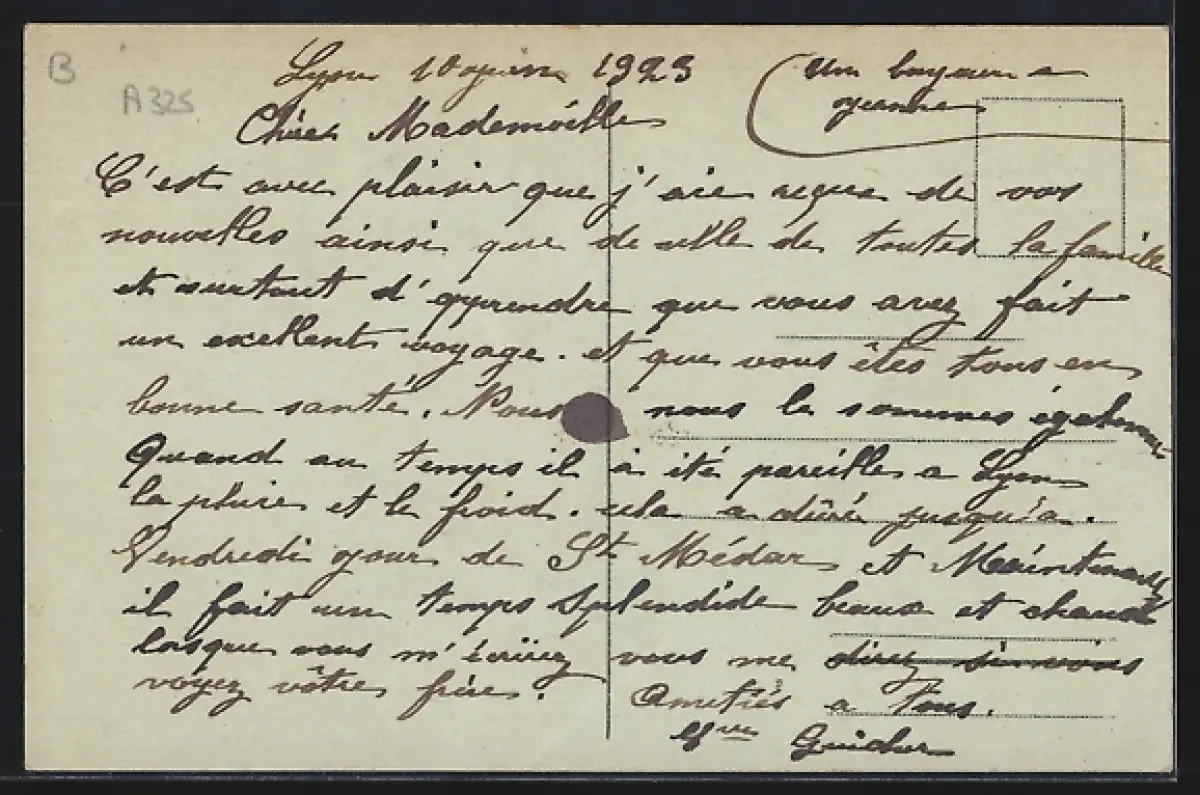 B
A325
Lyon 10 juin 1923
Un a
Chère Mademoiselle
C'est avec plaisir que j'aie reçue de vos
nouvelles ainsi que de de toutes la famille
et surtout d'apprendre que vous avez fait
un excellent voyage. et que vous êtes tous en
bonne santé. Nous nous le sommes également
Quand au temps il à été pareille a Lyon
la pluie et le froid. cela a dûré jusqu'a.
Vendredi jour de St Médar et Maintenant
il fait un temps splendide beaux et chaud
lorsque vous m'écrirez vous me direz si vous
voyez vôtre frère.
Ametiés a tous.